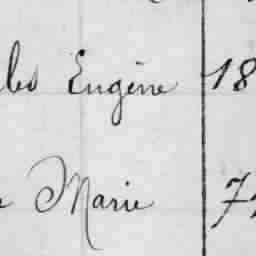 les Eugène 18
e Marie 72